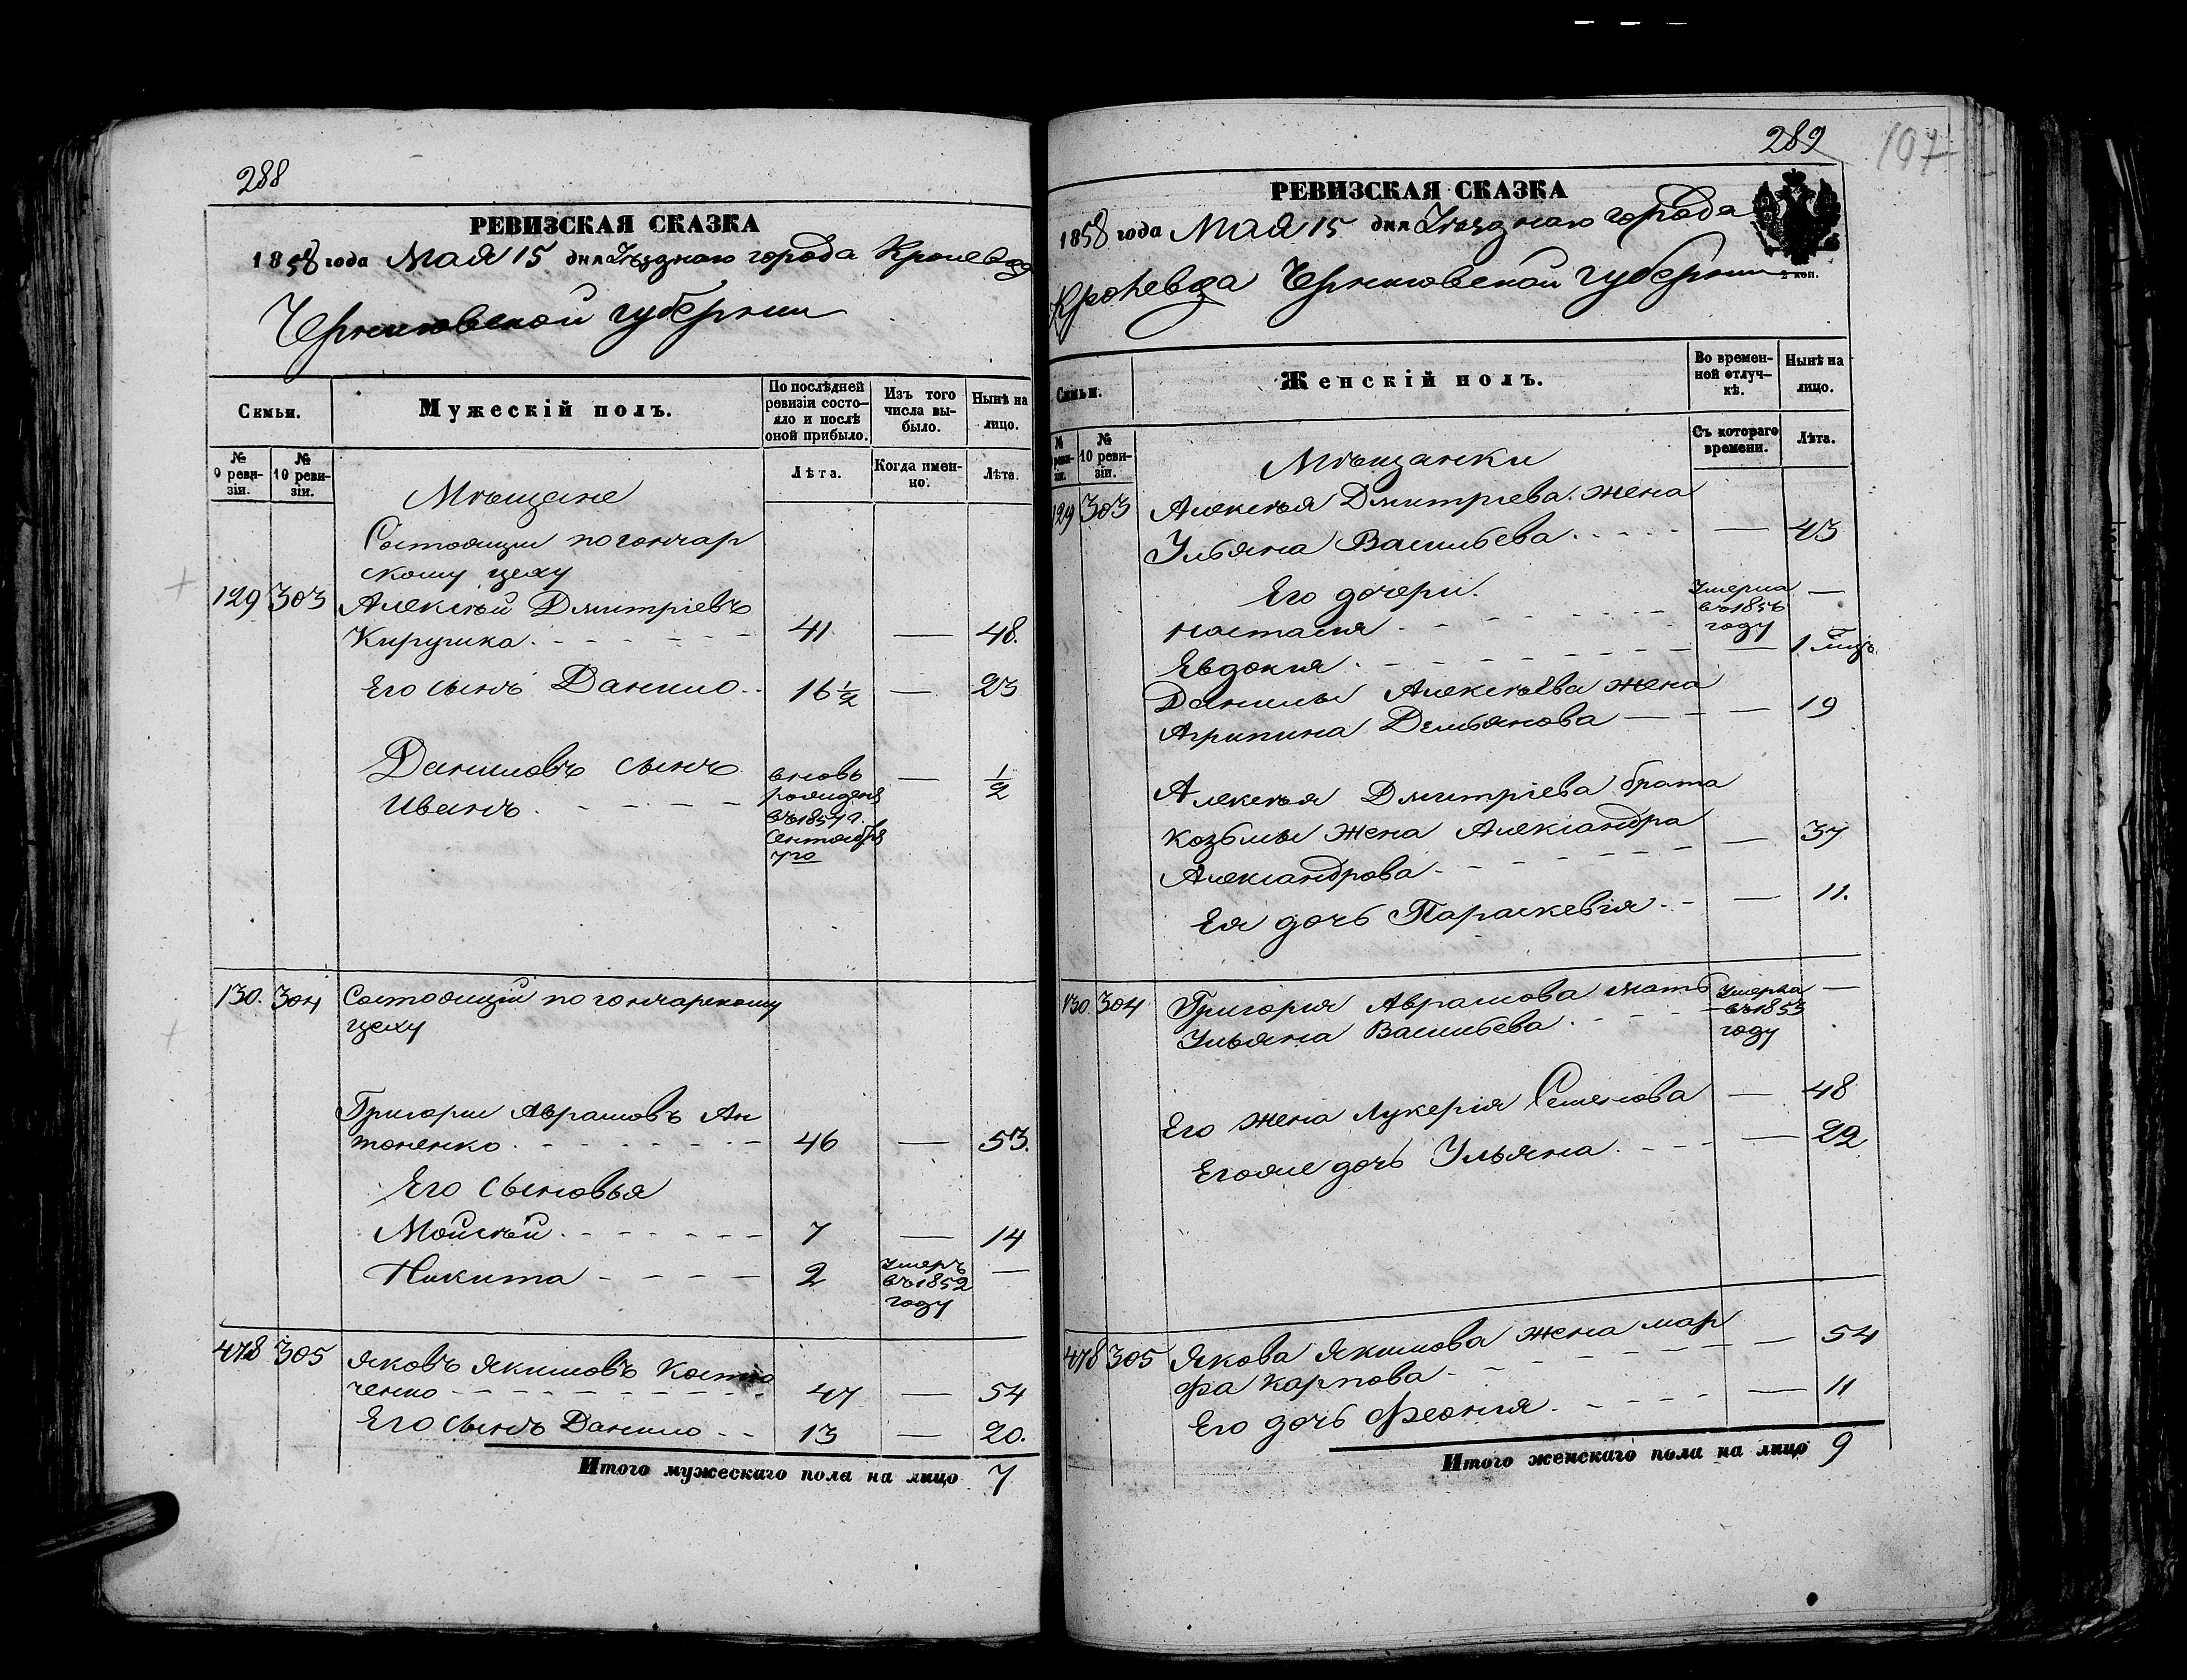 288
РЕВИЗСКАЯ СКАЗКА
1858 года Мая 15 дня Уѣзднаго города Кролевца
Черниговской губерніи
Семьи.
Мужескій полъ.
По послѣдней ревизіи состояло и послѣ оной прибыло.
Изъ того числа выбыло.
Нынѣ на лицо.
№ 9 ревизіи.
№ 10 ревизіи.
Лѣта.
Когда именно.
Лѣта.
Мѣщане
Состоящіи по гончар
скому цеху
129 303 Алексѣй Дмитріевъ
41 — 48.
Его сынъ Данило 16 1/2 — 23
Даниловъ сынъ
Иванъ вновь рожденъ въ 1857 г. Сентября 7го — 1/2
130. 304 Состоящій по гончарскому
цеху
Григорій Аврамовъ Ан
тоненко 46 — 53.
Его сыновья
Мойсѣй 7 — 14
Никита 2 Умеръ въ 1852 году —
478 305 Яковъ Якимовъ Костю
ченко 47 — 54
Его сынъ Данило 13 — 20.
Итого мужескаго пола на лицо 7
289
107
РЕВИЗСКАЯ СКАЗКА
1858 года Мая 15 дня Уѣзднаго города
Кролевца Черниговской губерніи
2 коп.
Семьи.
Женскій полъ.
Во временной отлучкѣ.
Нынѣ на лицо.
№ 9 ревизіи.
№ 10 ревизіи.
Съ котораго времени.
Лѣта.
Мѣщанки
129 303 Алексѣя Дмитріева жена
Ульяна Васильева — 43
Его дочери.
Настасія Умерла въ 1856 году —
Евдокия — 1 мѣсъ.
Данилы Алексѣева жена
Агрипина Демьянова — 19
Алексѣя Дмитріева брата
Козьмы жена Александра
Александрова — 37
Ея дочь Параскевія — 11.
130 304 Григорія Аврамова мать
Ульяна Васильева Умерла въ 1853 году —
Его жена Лукерія Семенова — 48
Егоже дочь Ульяна — 22
478 305 Якова Якимова жена мар
фа Карпова — 54
Его дочь Феонія — 11
Итого женскаго пола на лицо 9